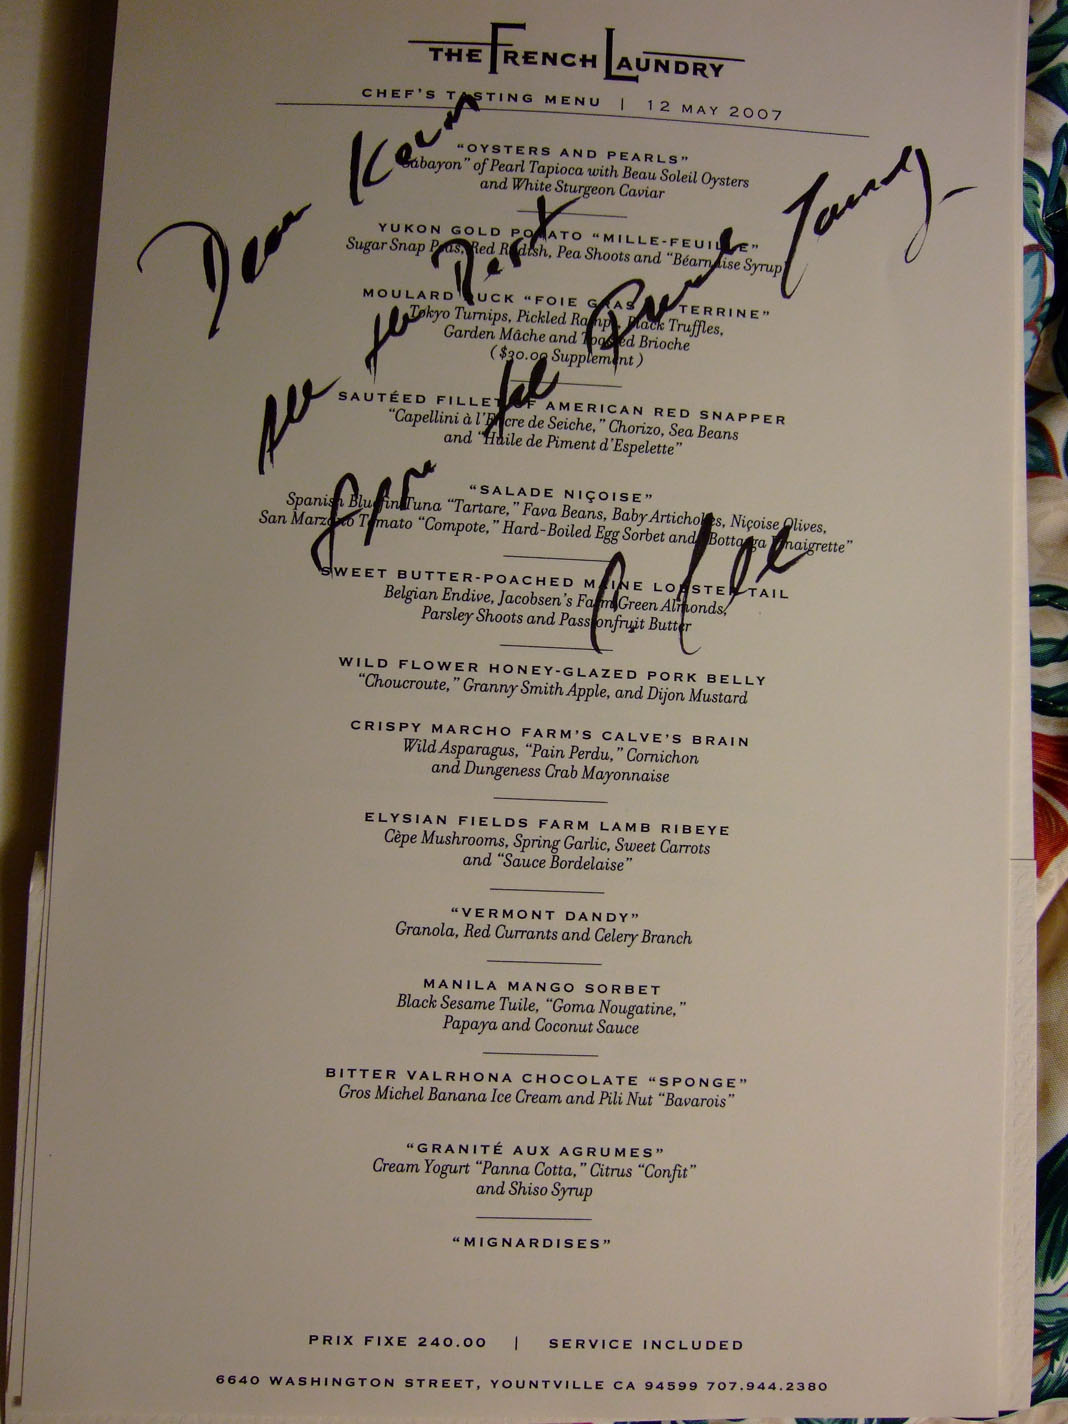 THE FRENCH LAUNDRY
CHEF'S TASTING MENU | 12 MAY 2007
"OYSTERS AND PEARLS"
"Sabayon" of Pearl Tapioca with Beau Soleil Oysters
and White Sturgeon Caviar
YUKON GOLD POTATO "MILLE-FEUILLE"
Sugar Snap Peas, Red Radish, Pea Shoots and "Béarnaise Syrup"
MOULARD DUCK "FOIE GRAS EN TERRINE"
Tokyo Turnips, Pickled Ramps, Black Truffles,
Garden Mâche and Toasted Brioche
($30.00 Supplement)
SAUTÉED FILLET OF AMERICAN RED SNAPPER
"Capellini à l'Encre de Seiche," Chorizo, Sea Beans
and "Huile de Piment d'Espelette"
"SALADE NIÇOISE"
Spanish Bluefin Tuna "Tartare," Fava Beans, Baby Artichokes, Niçoise Olives,
San Marzano Tomato "Compote," Hard-Boiled Egg Sorbet and "Bottarga Vinaigrette"
SWEET BUTTER-POACHED MAINE LOBSTER TAIL
Belgian Endive, Jacobsen's Farm Green Almonds,
Parsley Shoots and Passionfruit Butter
WILD FLOWER HONEY-GLAZED PORK BELLY
"Choucroute," Granny Smith Apple, and Dijon Mustard
CRISPY MARCHO FARM'S CALVE'S BRAIN
Wild Asparagus, "Pain Perdu," Cornichon
and Dungeness Crab Mayonnaise
ELYSIAN FIELDS FARM LAMB RIBEYE
Cèpe Mushrooms, Spring Garlic, Sweet Carrots
and "Sauce Bordelaise"
"VERMONT DANDY"
Granola, Red Currants and Celery Branch
MANILA MANGO SORBET
Black Sesame Tuile, "Goma Nougatine,"
Papaya and Coconut Sauce
BITTER VALRHONA CHOCOLATE "SPONGE"
Gros Michel Banana Ice Cream and Pili Nut "Bavarois"
"GRANITÉ AUX AGRUMES"
Cream Yogurt "Panna Cotta," Citrus "Confit"
and Shiso Syrup
"MIGNARDISES"
PRIX FIXE 240.00 | SERVICE INCLUDED
6640 WASHINGTON STREET, YOUNTVILLE CA 94599 707.944.2380
Dear
All the Best